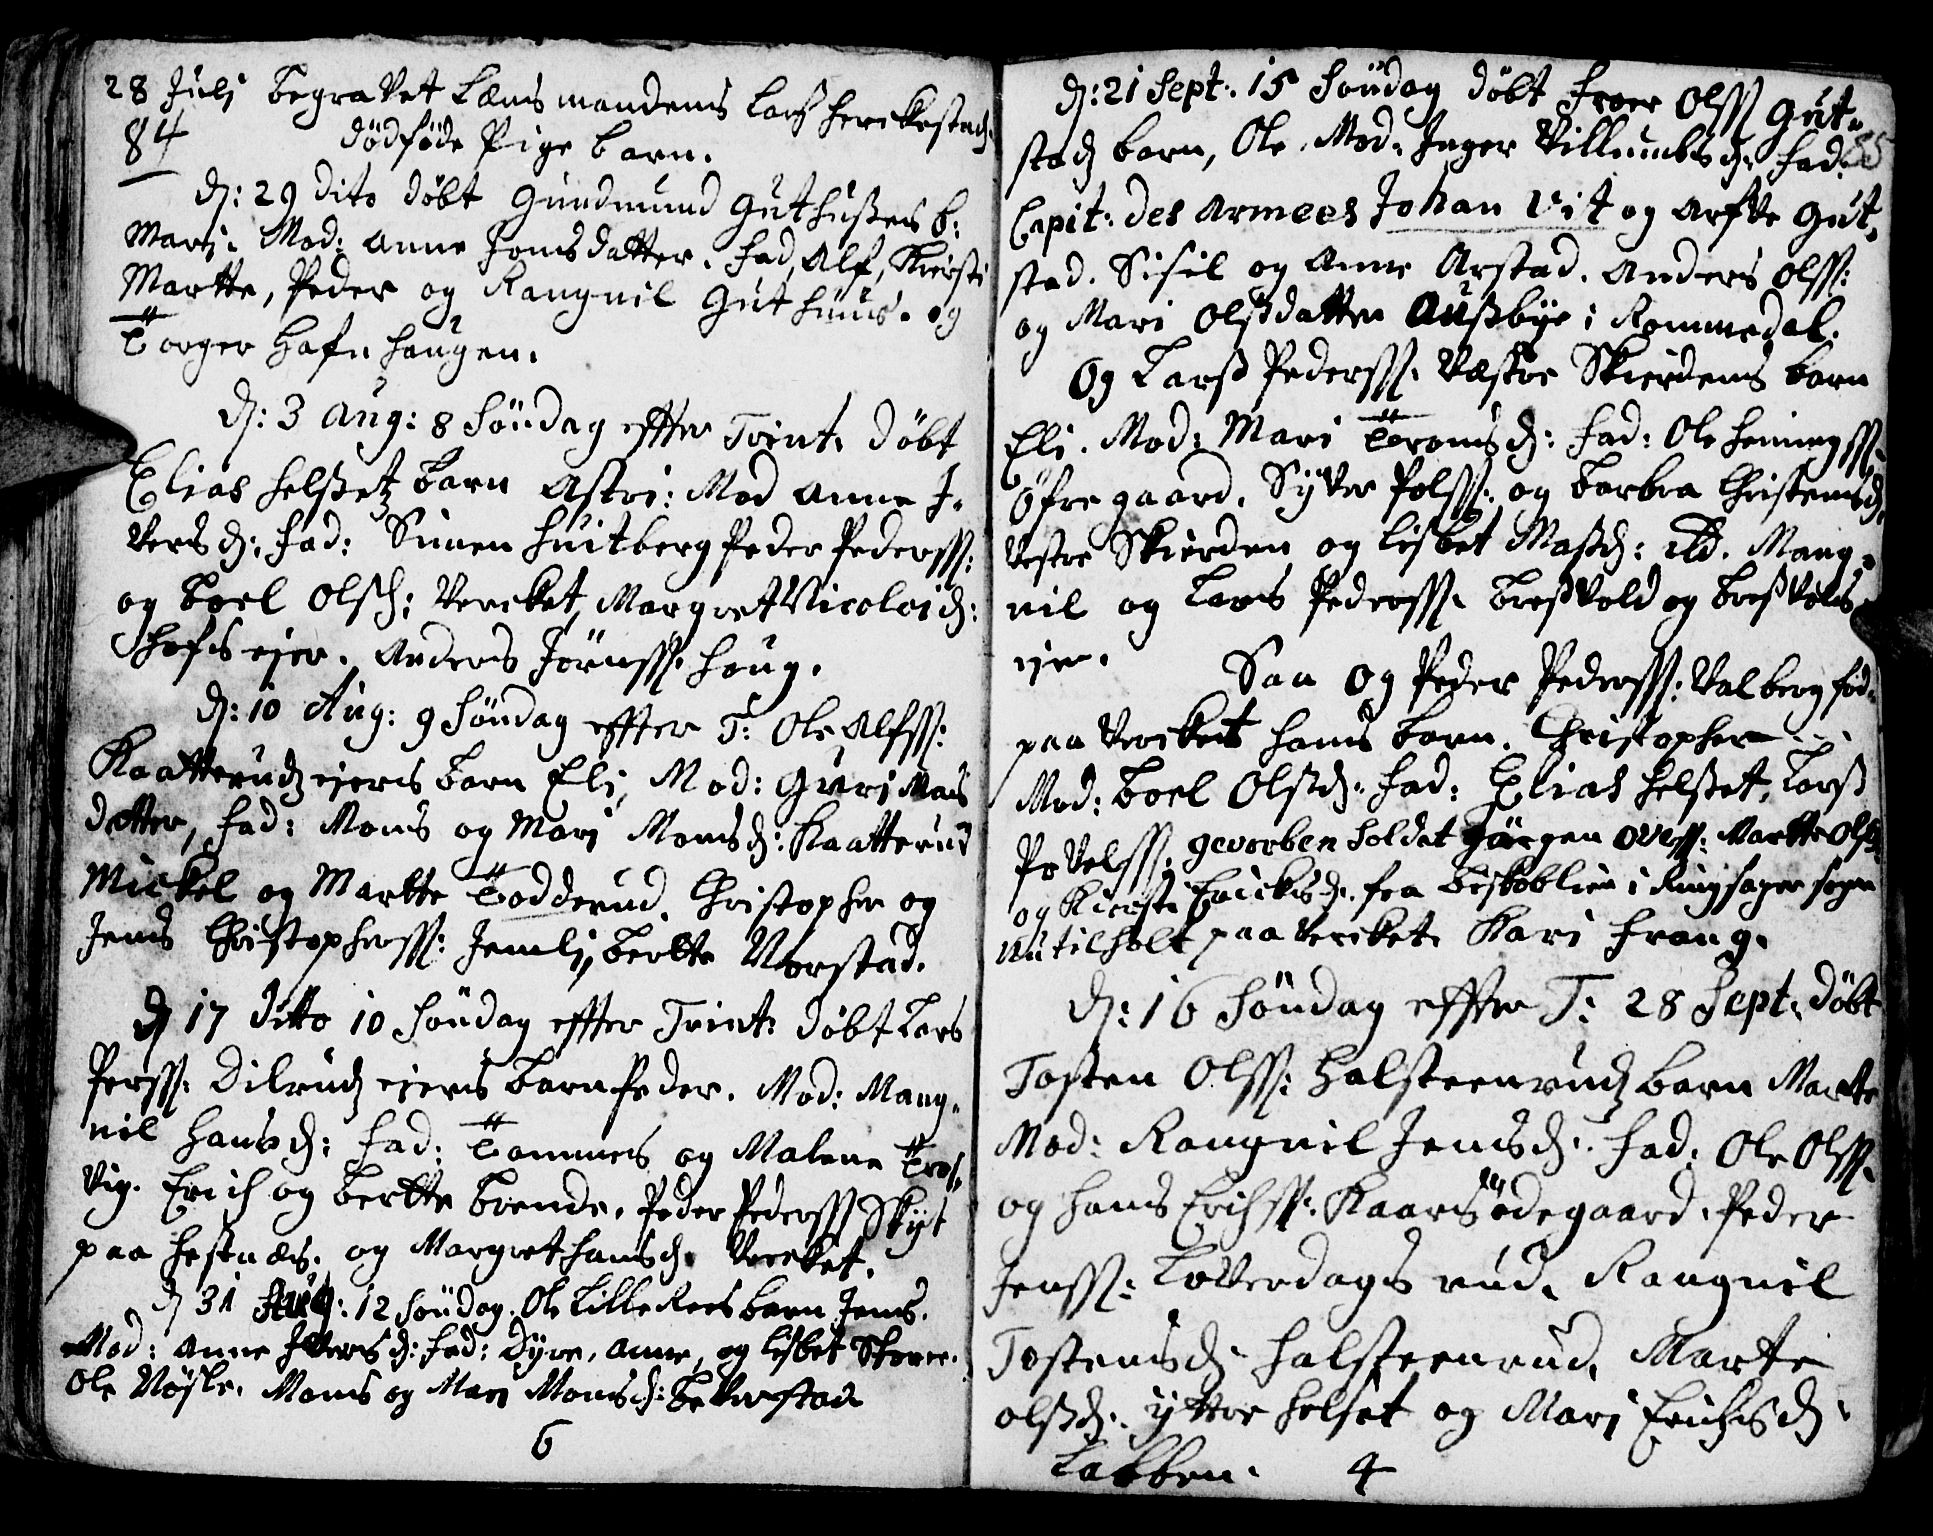 28 Julj begravet Lænsmandens Lars Herckestad
84 dödföde Pige barn.
d: 29 dito döbt Gundmund Guthußes b:
Marj. Mod: Anne Jonsdatter. Fad, Alf, Kiersti
Martte, Peder og Rangnil Guthuus. og
Torger Hafn haugen.
d: 3 Aug: 8 Söndag effter Trint. döbt
Elias Helßetz barn Astri: Mod Anne I-
versd: Fad: Simen Huitberg Peder Pederss:
og Boel Olsd: Vercket, Margret Nicolaid:
Hofs ejer. Anders Jörnss. Haug.
d: 10 Aug: 9 Söndag effter T: Ole Alfss:
Kaatterudz ejers barn Elj, Mod: Guri Mons
datter, Fad: Mons og Marj Monsd: Kaatterud
Mickel og Martte Todderud. Christopher og
Jens Christopherss: Jemlj, Bertte Norstad.
d 17 ditto 10 Söndag effter Trint: döbt Lars
Perss: Dilrudz ejers barn Peder. Mod: Mang-
nil Hansd: Fad: Tommes og Malene Tros-
vig. Erich og Bertte Brende. Peder Pederss Skÿt
paa Hestnæs. og Margret Hansd. Vercket.
d 31 Aug: 12 Söndag. Ole Lille Rees barn Jens.
Mod: Anne Iversd: Fad: Dyre, Anne, og Lisbet Skorre.
Ole Nöste. Mons og Mari Monsd: Beverstad
6
d: 21 Sept: 15 Söndag döbt Froer Olss Gut-
stad barn, Ole. Mod: Inger Villumbsd: Fad: 85
Capit: des Armees Johan Vit og Arfve Gut-
stad. Sisil og Anne Arstad. Anders Olss:
og Mari Olßdatter Außbÿe i Rommedal.
Og Larß Pederss: Væstre Skierdens barn
Eli. Mod: Mari Tromsd: Fad: Ole Heningss:
Öfre gaard. Syver Polss: og Barbra Christensd.
Vestre Skierden og Lisbet Maßd: ibd. Mang-
nil og Lars Pederss. Breßvold og Breßvols
eje.
Saa og Peder Pederss: Valberg föd.
paa Vercket hans barn. Christopher
Mod: Boel Olßd. Fad: Elias Helßet, Larß
Povelss. gevorben Soldat Jörgen Ovess: Martte Olsd:
og Kiersti Ericksd. fra Biskoblien i Ringsager sogn
nu tilholt paa Vercket. Kari Frang.
d: 16 Söndag effter T: 28 Sept: döbt
Tosten Olss: Halsteenrudz barn Martte
Mod: Rangnil Jensd: Fad: Ole Olss:
og Hans Erichss: Kaars ödegaard. Peder
Jenss: Loverdags rud. Rangnil
Tostensd. Halsteenrud. Marte
Olßd: ÿttre Helset og Marj Erichsd:
Labben. 4